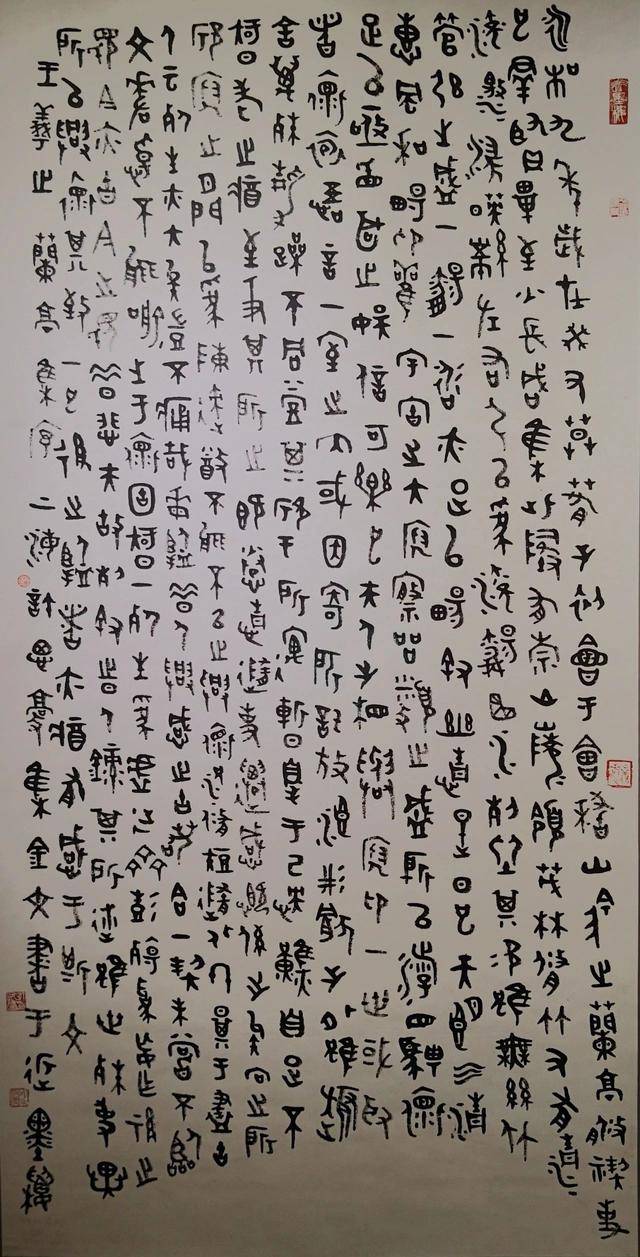 永和九年歲在癸丑暮春之初會于會稽山陰之蘭亭脩禊事
也羣賢畢至少長咸集此地有崇山峻領茂林脩竹又有清
流激湍暎帶左右引以為流觴曲水列坐其次雖無絲竹
管弦之盛一觴一詠亦足以暢敘幽情是日也天朗氣清
惠風和暢仰觀宇宙之大俯察品類之盛所以遊目騁懷
足以極視聽之娛信可樂也夫人之相與俯仰一世或取
諸懷抱悟言一室之內或因寄所託放浪形骸之外雖趣
舍萬殊靜躁不同當其欣于所遇暫得于己快然自足不
知老之將至及其所之既倦情隨事遷感慨係之矣向之所
欣俛仰之間以為陳迹猶不能不以之興懷況脩短隨化終期于盡古
人云死生亦大矣豈不痛哉每覽昔人興感之由若合一契未嘗不臨
文嗟悼不能喻之于懷固知一死生為虛誕齊彭殤為妄作後之
視今亦由今之視昔悲夫故列敘時人錄其所述雖世殊事異
所以興懷其致一也後之覽者亦有感于斯文
王羲之蘭亭集序 集金文書于墨緣